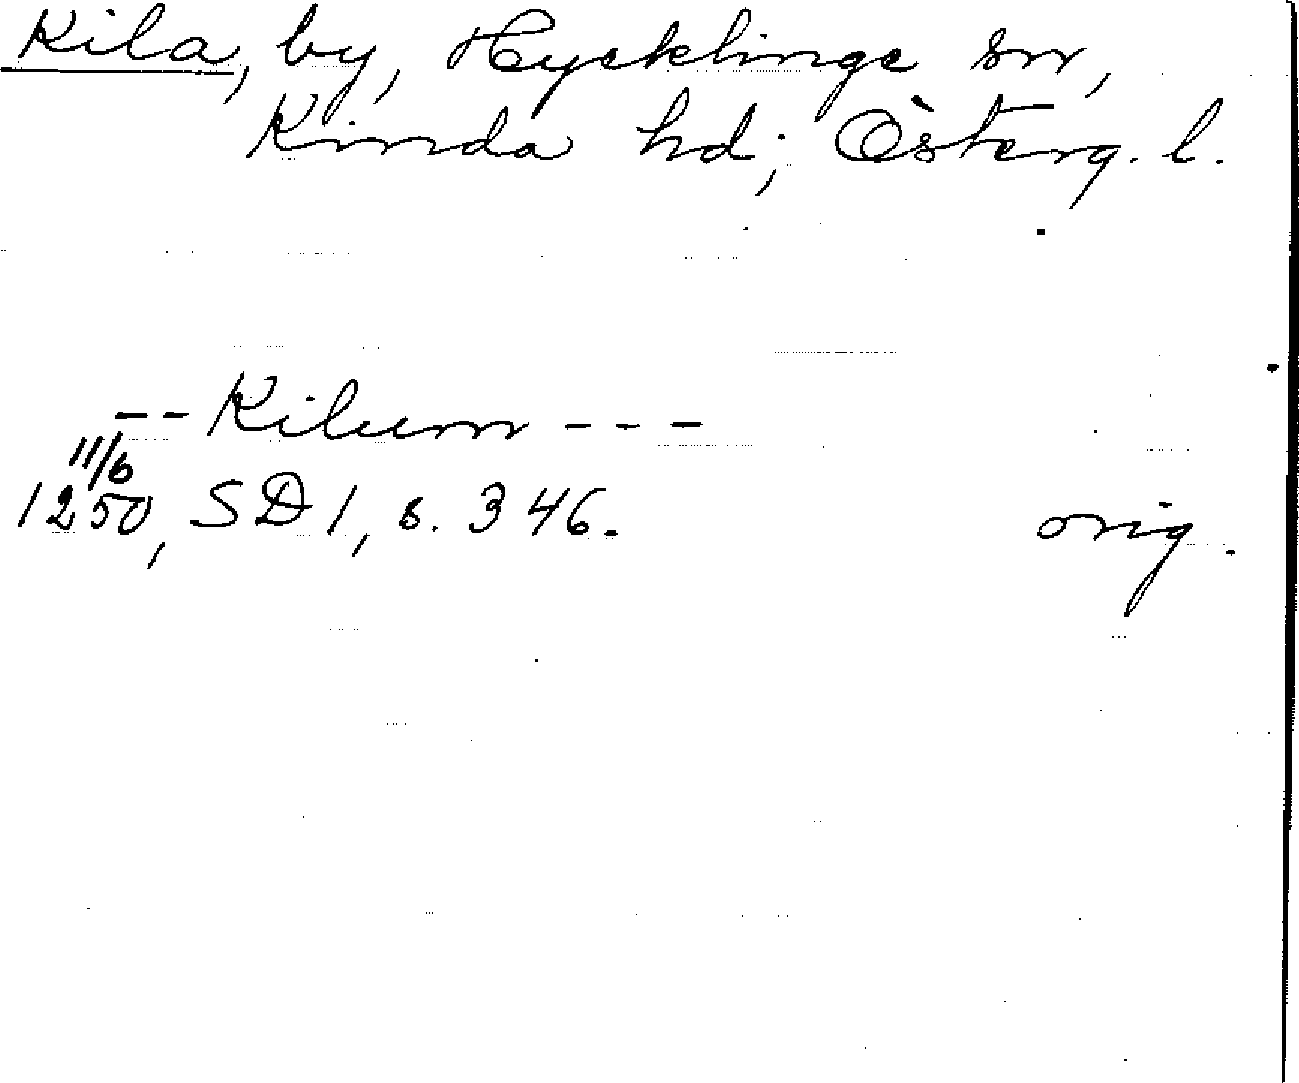 Kila, by, Hycklinge sn,
Kinda hd; Österg. l.
-- Kilum ---
11/6
1250, SD 1, s. 346. orig.